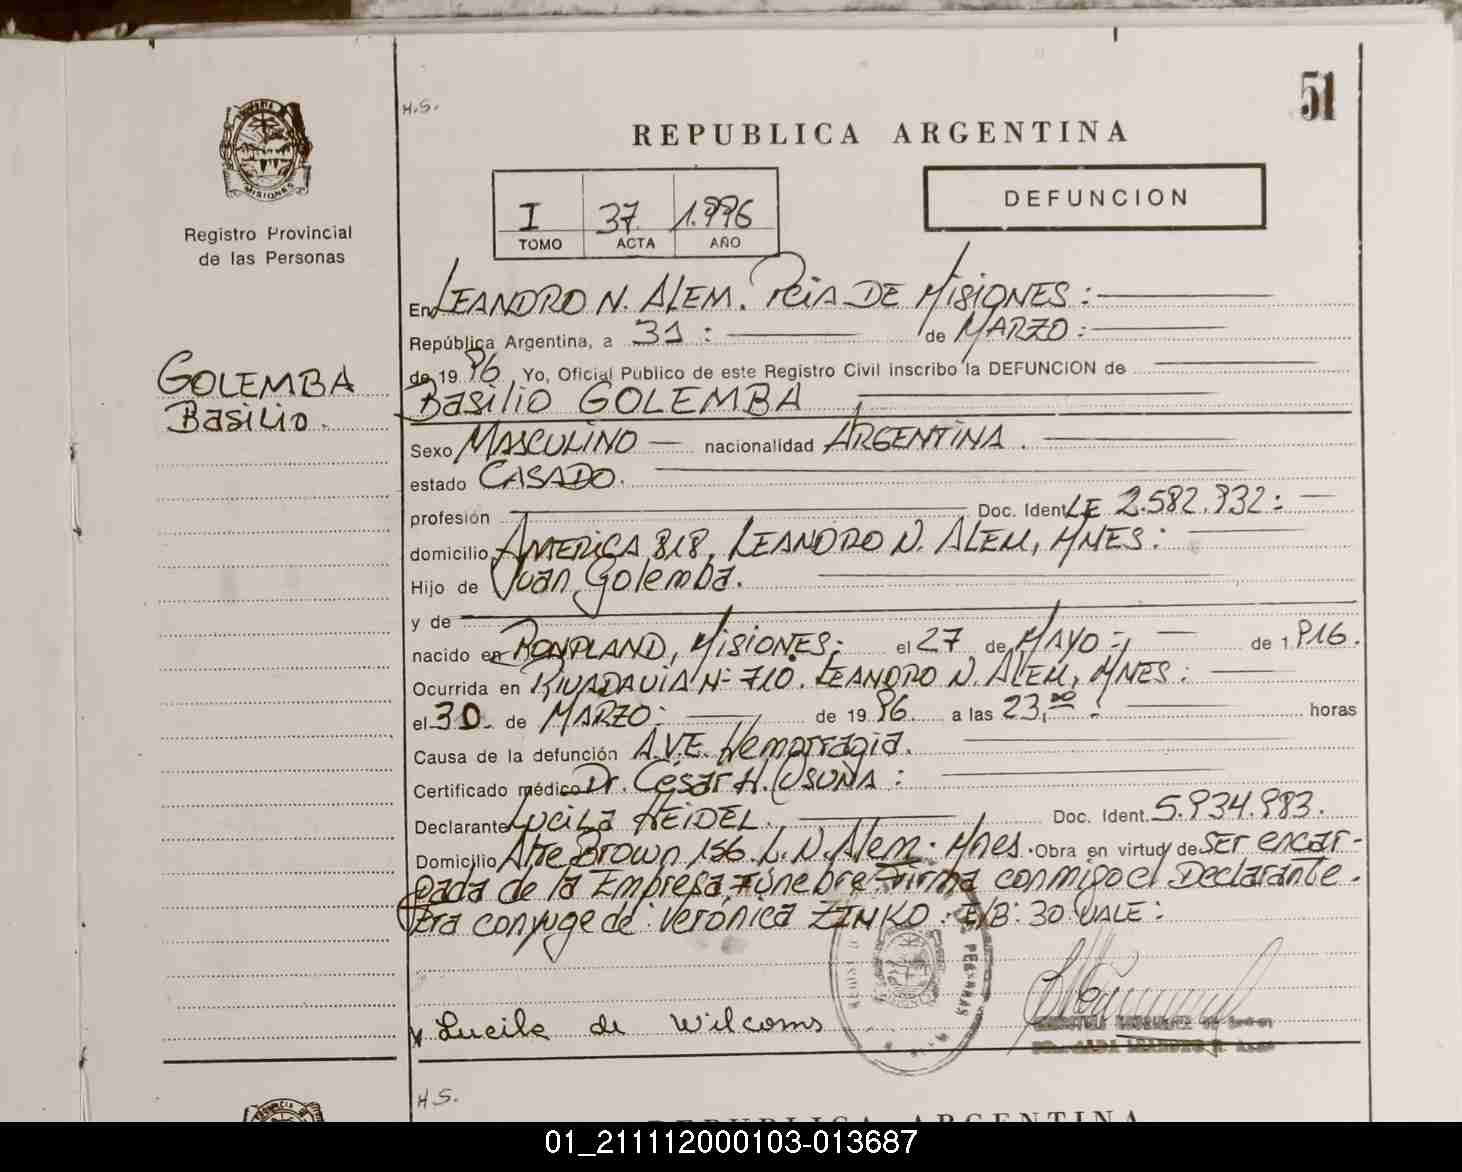 51
H.S.
REPUBLICA ARGENTINA
I 37 1.996
TOMO ACTA AÑO
DEFUNCION
MISIONES
Registro Provincial
de las Personas
GOLEMBA
Basilio.
En LEANDRO N. ALEM. Pcia DE MISIONES:
República Argentina, a 31: de MARZO:
de 19 96 Yo, Oficial Publico de este Registro Civil inscribo la DEFUNCION de
Basilio GOLEMBA
Sexo MASCULINO nacionalidad ARGENTINA.
estado CASADO.
profesión Doc. Ident. LE 2.582.932:
domicilio AMERICA 818, LEANDRO N. ALEM, MNES:
Hijo de Juan Golemba.
y de
nacido en BONPLAND, MISIONES: el 27 de MAYO de 1.916.
Ocurrida en RIVADAVIA Nº 710. LEANDRO N. ALEM, MNES:
el 30. de MARZO: de 19 96. a las 23,00: horas
Causa de la defunción A.V.E. Hemorragia.
Certificado médico Dr. César H. OSUNA:
Declarante Lucila HEIDEL. Doc. Ident. 5.934.983.
Domicilio Alte Brown 156. L. N. Alem. Mnes. Obra en virtud de ser encar-
gada de la Empresa Fúnebre. Firma conmigo el Declarante.
Era conyuge de: Verónica ZINKO. E/B: 30 VALE:
Lucila de Wilcoms
H S.
REPUBLICA ARGENTINA
01_211112000103-013687